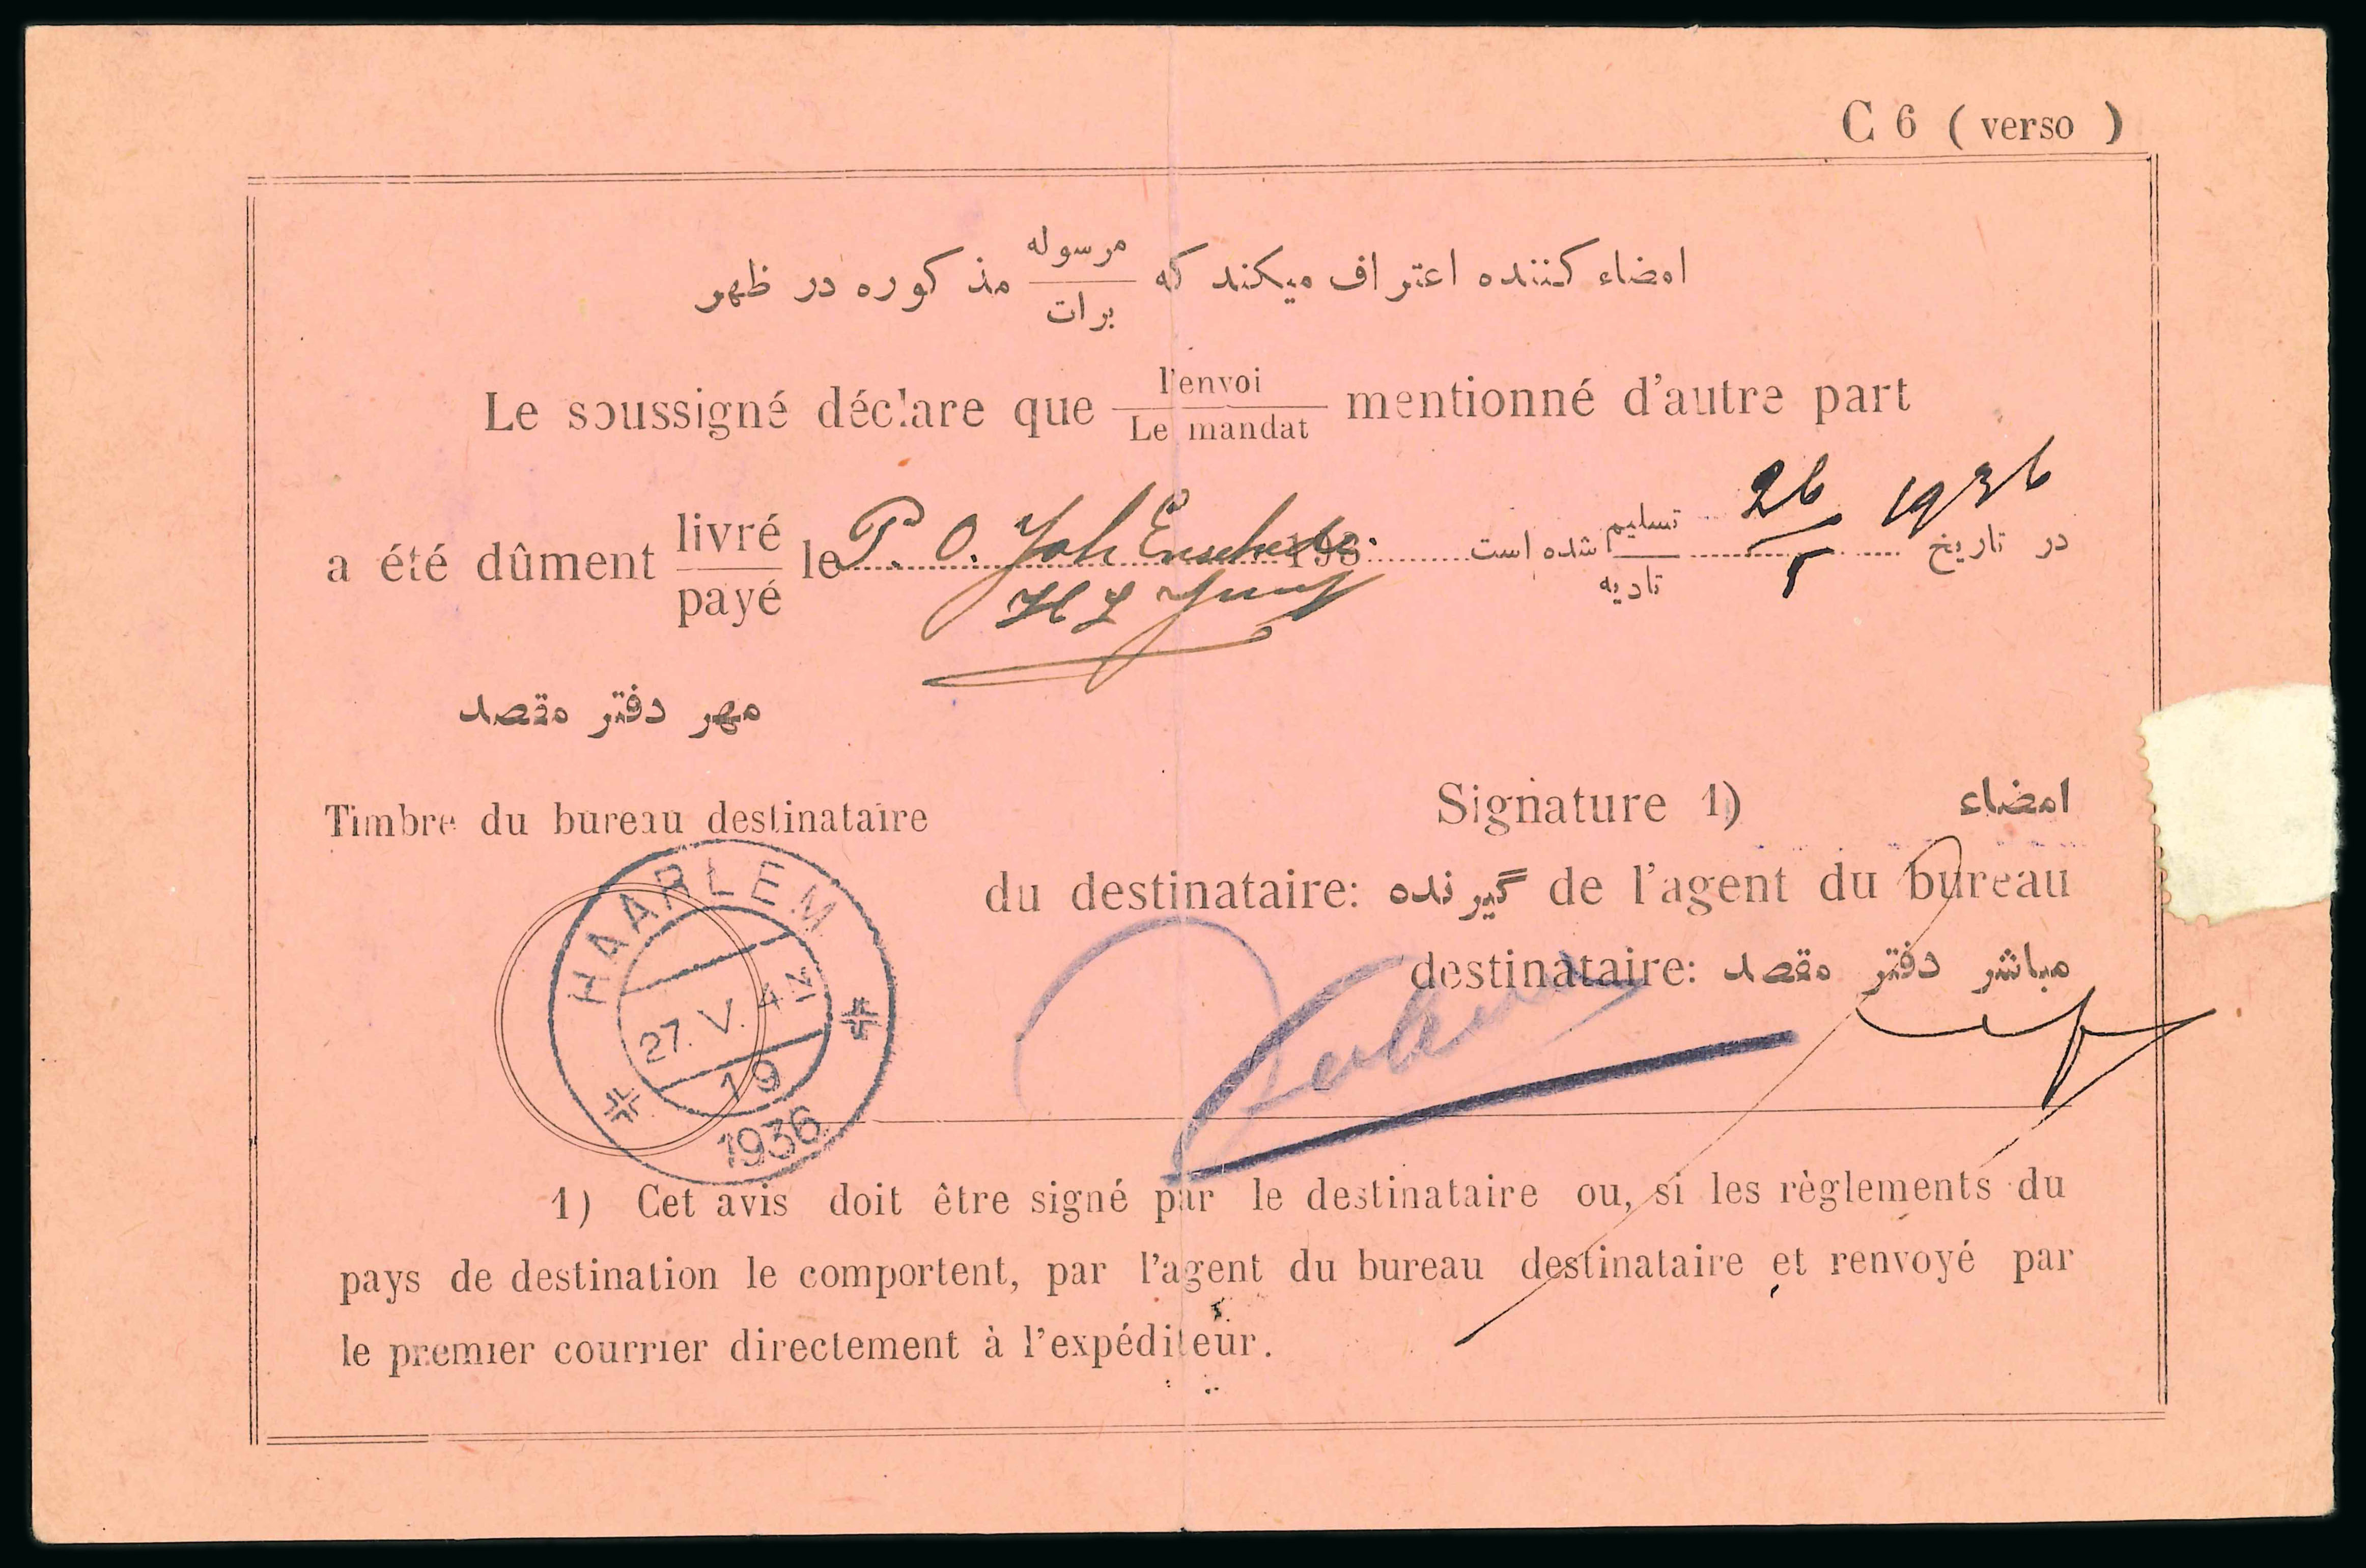 C 6 ( verso )
امضاء کننده اعتراف میکند که مرسوله مذکوره در ظهر
برات
Le soussigné déclare que l'envoi mentionné d'autre part
Le mandat
26 1936
5
a été dûment livré le P. O. Joh Enschede 193 شده است تسلیم در تاریخ
payé تادیه
مهر دفتر مقصد
Timbre du bureau destinataire
Signature 1) امضاء
du destinataire: گیرنده de l'agent du bureau
destinataire: مباشر دفتر مقصد
HAARLEM
27. V. 4 N
19
1936
1) Cet avis doit être signé par le destinataire ou, si les règlements du
pays de destination le comportent, par l'agent du bureau destinataire et renvoyé par
le premier courrier directement à l'expéditeur.